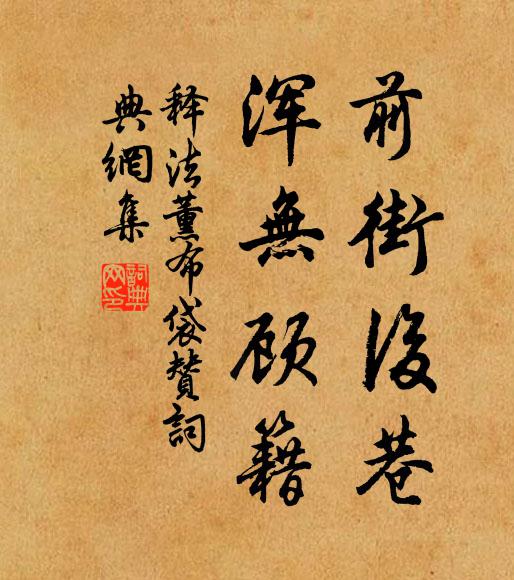 前街後巷
浑無顾籍
释法薰布袋赞詞
典網集
詞典網印